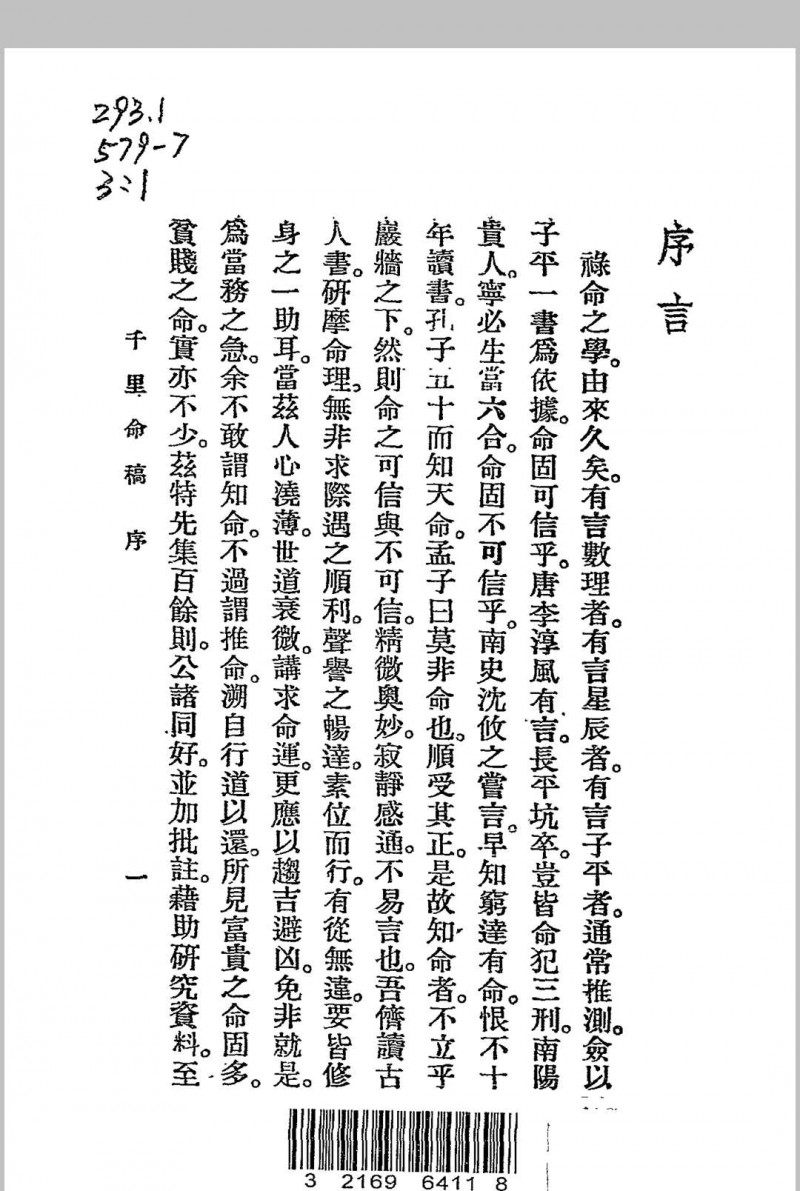 293.1
579-7
3:1
序言
祿命之學。由來久矣。有言數理者。有言星辰者。有言子平者。通常推測。僉以
子平一書爲依據。命固可信乎。唐李淳風有言。長平坑卒。豈皆命犯三刑。南陽
貴人。寧必生當六合。命固不可信乎。南史沈攸之嘗言。早知窮達有命。恨不十
年讀書。孔子五十而知天命。孟子曰莫非命也。順受其正。是故知命者。不立乎
巖牆之下。然則命之可信與不可信。精微奧妙。寂靜感通。不易言也。吾儕讀古
人書。研摩命理。無非求際遇之順利。聲譽之暢達。素位而行。有從無違。要皆修
身之一助耳。當茲人心澆薄。世道衰微。講求命運。更應以趨吉避凶。免非就是。
爲當務之急。余不敢謂知命。不過謂推命。溯自行道以還。所見富貴之命固多。
貧賤之命。實亦不少。茲特先集百餘則。公諸同好。並加批註。藉助研究資料。至
千里命稿 序 一
3 2169 6411 8